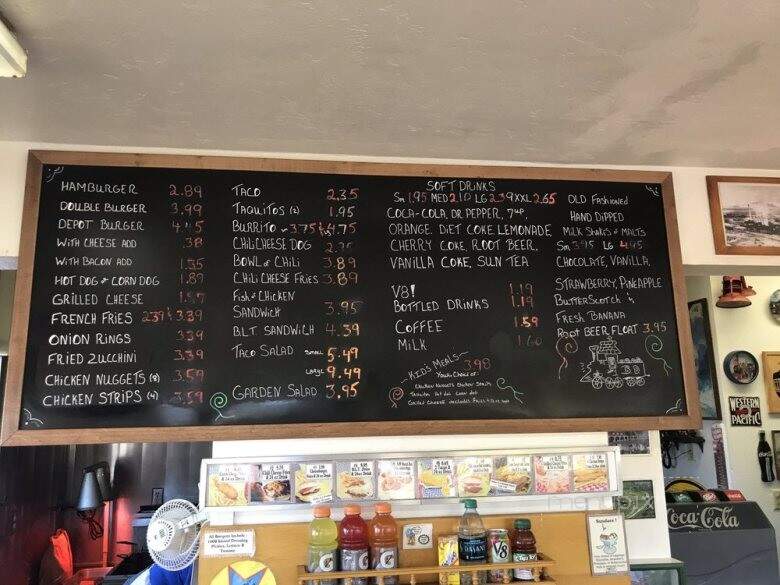 HAMBURGER 2.89
DOUBLE BURGER 3.99
DEPOT BURGER
WITH CHEESE ADD .38
WITH BACON ADD
HOT DOG & CORN DOG 1.89
GRILLED CHEESE
FRENCH FRIES 2.39 & 3.39
ONION RINGS 3.39
FRIED ZUCCHINI 3.39
CHICKEN NUGGETS (8) 3.59
CHICKEN STRIPS (4) 3.59
TACO 2.35
TAQUITOS (2) 1.95
BURRITO 3.75 & 4.75
CHILI CHEESE DOG
BOWL of CHILI 3.89
CHILI CHEESE FRIES 3.89
FISH & CHICKEN
SANDWICH 3.95
B.L.T. SANDWICH 4.39
TACO SALAD SMALL 5.49
LARGE 9.49
GARDEN SALAD 3.95
SOFT DRINKS
Sm 1.95 MED 2.10 LG 2.39 XXL 2.65
COCA-COLA, DR. PEPPER, 7up,
ORANGE, DIET COKE, LEMONADE
CHERRY COKE, ROOT BEER,
VANILLA COKE, SUN TEA
V8! 1.19
BOTTLED DRINKS 1.19
COFFEE 1.59
MILK 1.60
KIDS MEALS 3.98
Your Choice of:
Chicken Nuggets Chicken Strips
Taquitos Hot dog Corn dog
Grilled Cheese includes Fries
OLD Fashioned
HAND DIPPED
MILK Shakes & MALTS
Sm 3.95 LG 4.95
CHOCOLATE, VANILLA,
STRAWBERRY, PINEAPPLE
BUTTERSCOTCH &
FRESH BANANA
ROOT BEER FLOAT 3.95
WESTERN
PACIFIC
Coca-Cola
DASANI
V8